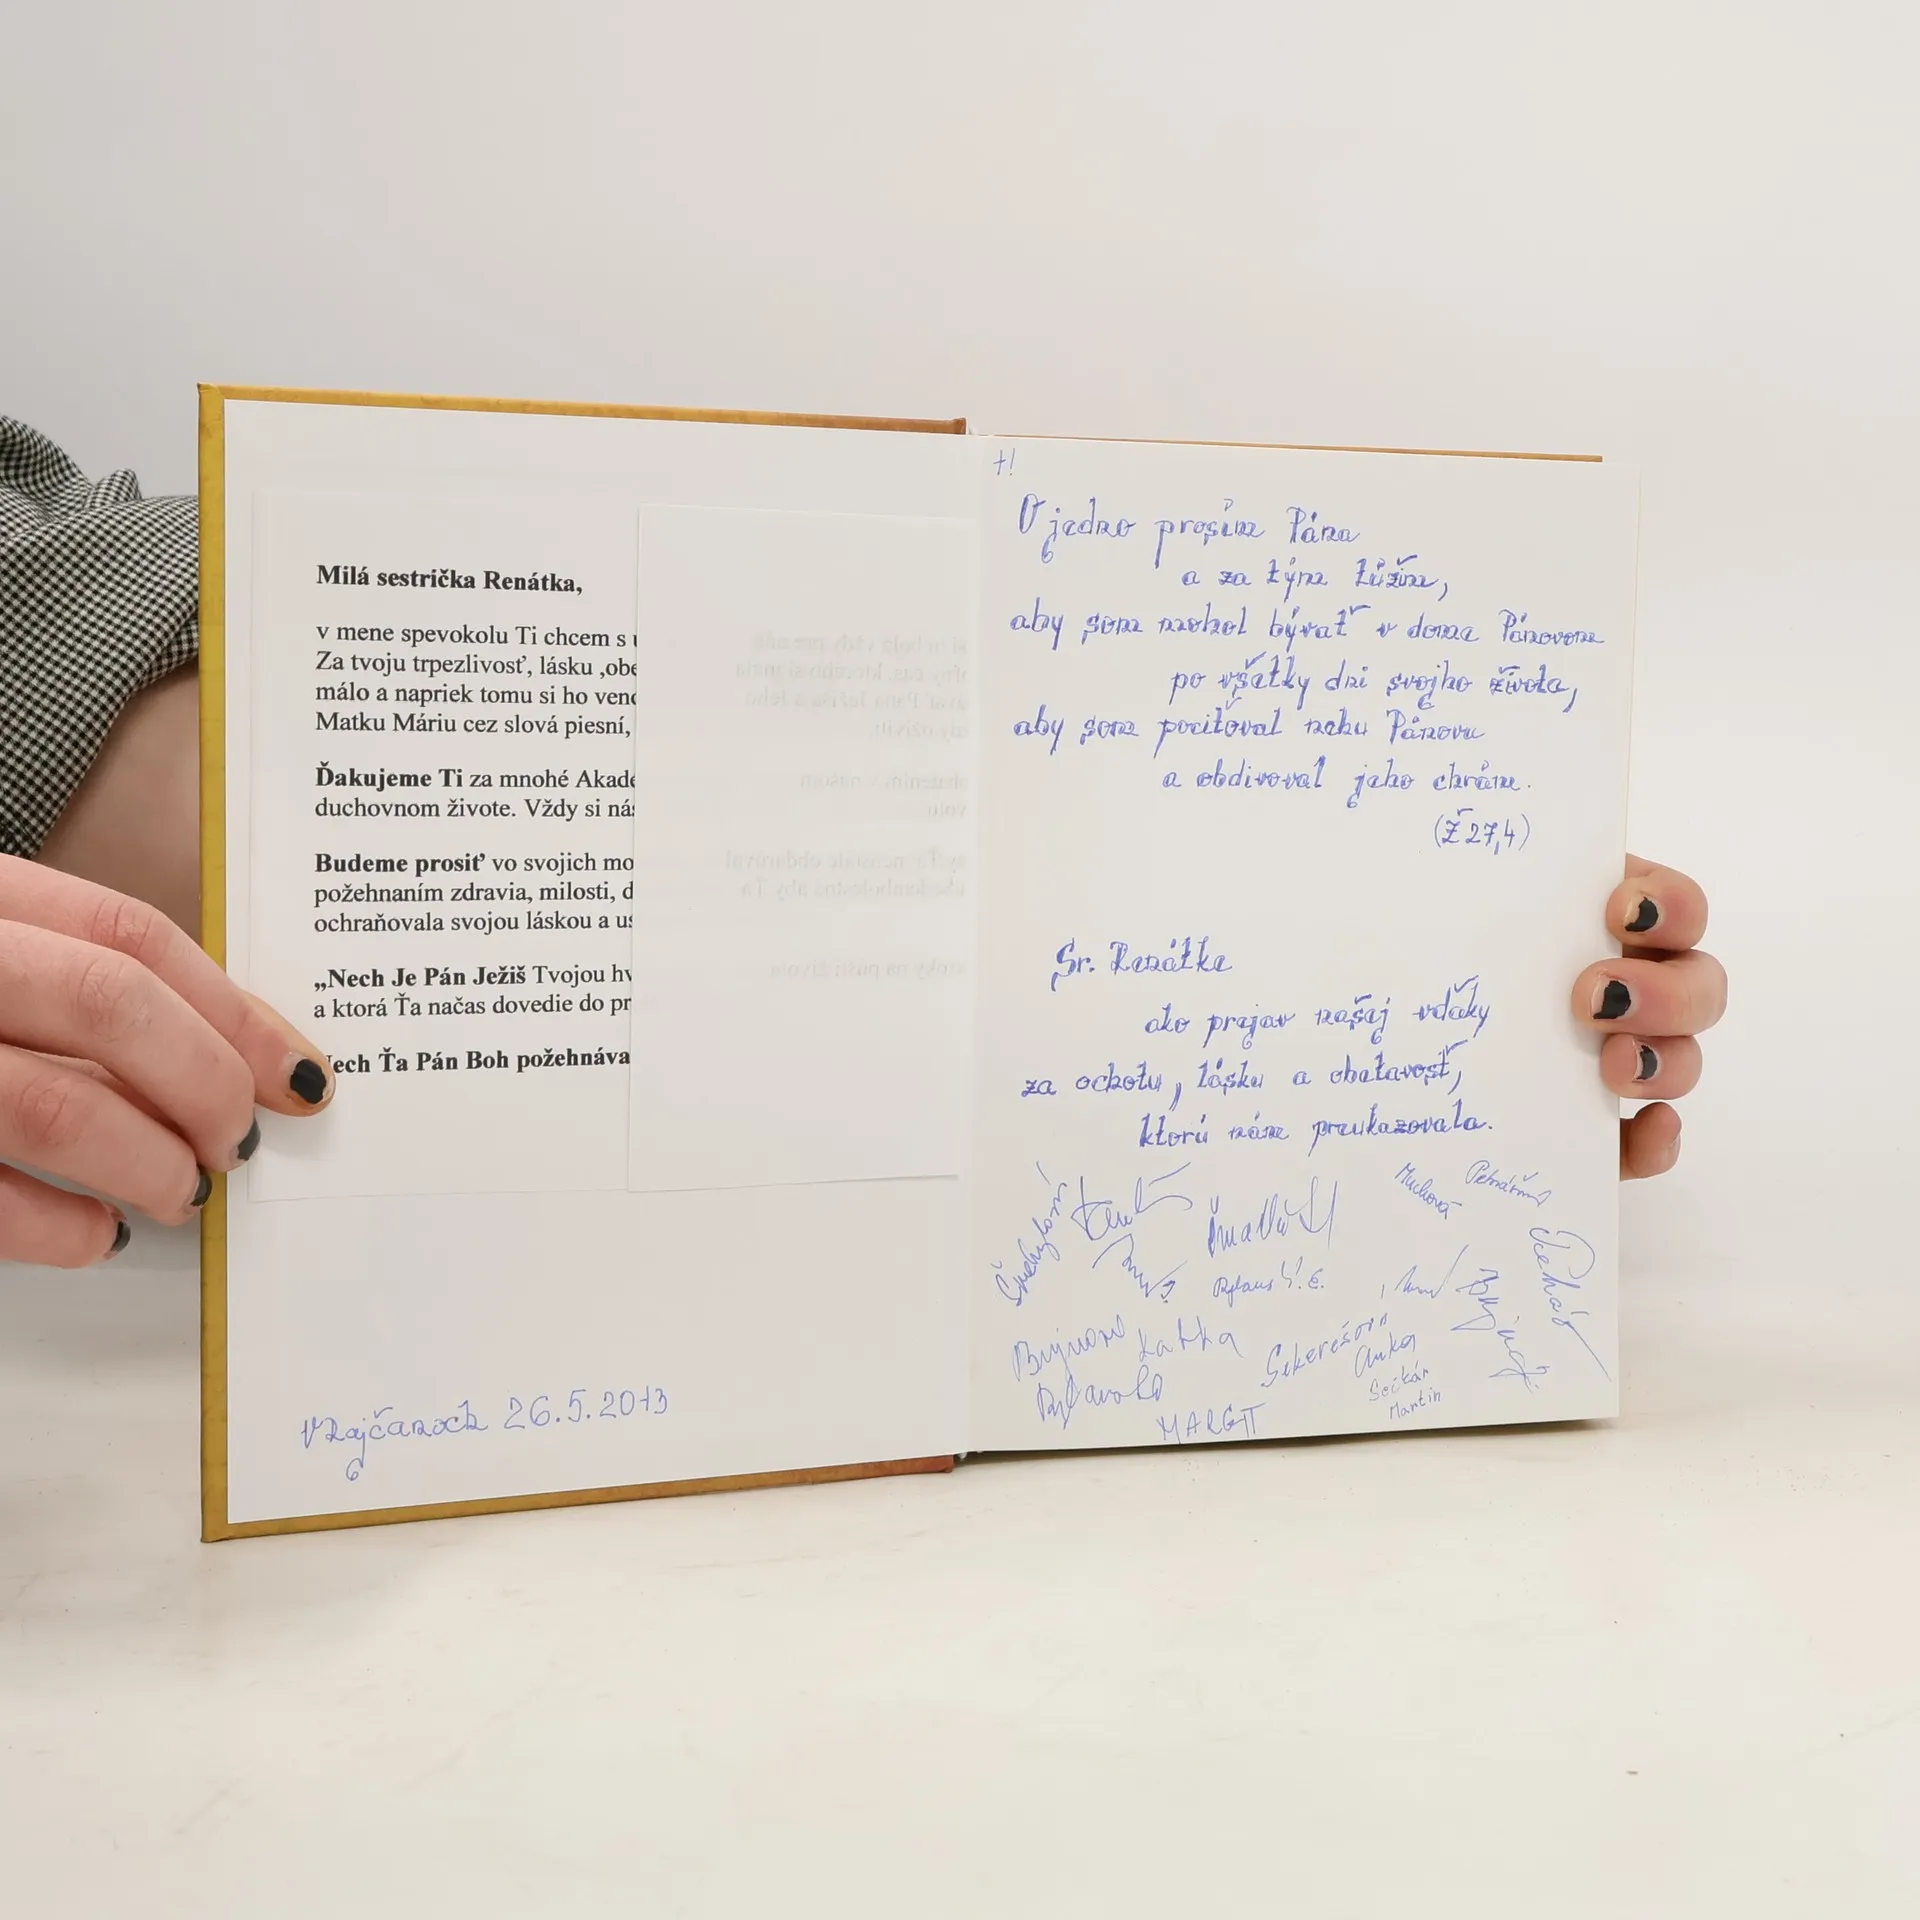 Milá sestrička Renátka,
v mene spevokolu Ti chcem s
Za tvoju trpezlivosť, lásku ,obe
málo a napriek tomu si ho venc
Matku Máriu cez slová piesní,
Ďakujeme Ti za mnohé Akadé
duchovnom živote. Vždy si nás
Budeme prosiť vo svojich mo
požehnaním zdravia, milosti, d
ochraňovala svojou láskou a us
„Nech Je Pán Ježiš Tvojou hv
a ktorá Ťa načas dovedie do pr
ech Ťa Pán Boh požehnáva
V Rajčanoch 26.5.2013
+!
O jedno prosím Pána
a za tým túžim,
aby som mohol bývať v dome Pánovom
po všetky dni svojho života,
aby som pociťoval nehu Pánovu
a obdivoval jeho chrám.
(Ž 27,4)
Sr. Renátke
ako prejav našej vďaky
za ochotu, lásku a obetavosť,
ktorú nám preukazovala.
Muchová
Katka
Sekerešová
Anka
Sečkár
Martin
MARGIT